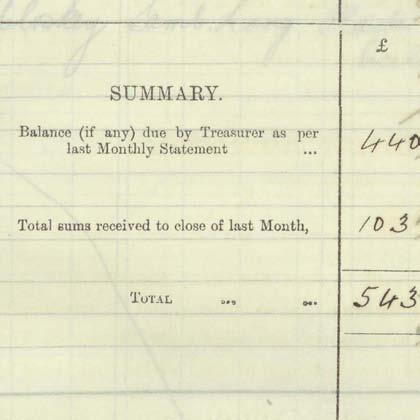 £
SUMMARY.
Balance (if any) due by Treasurer as per
last Monthly Statement ... 440
Total sums received to close of last Month, 103
TOTAL ... ... 543